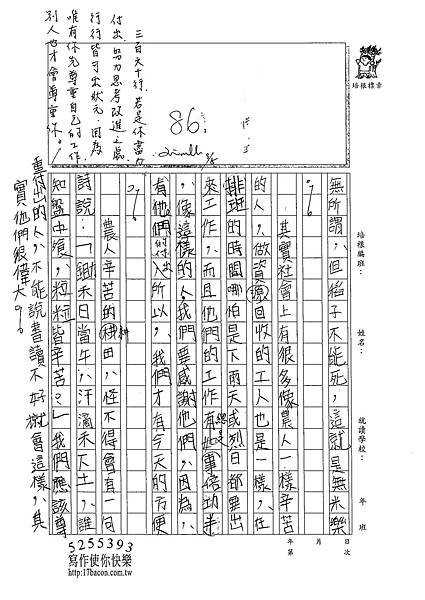 培根標章
培根編班：
姓名：
就讀學校：
年
班
年 月 日
第 次
86
三百六十行，若是你盡力
付出，努力思考改進之處，
行行皆可出狀元，因為
唯有你先尊重自己的工作，
別人也才會尊重你。
無所謂，但稻子不能死，這就是無米樂
。
其實社會上有很多像農人一樣辛苦
的人，做資源回收的工人也是一樣，在
排班的時間哪怕是下雨天或烈日都要出
來工作，而且他們的工作總是事倍功半
，像這樣的人我們要感謝他們，因為，
有他們的付出所以，我們才有今天的方便
。
農人辛苦的耕田，怪不得會有一句
詩說：「鋤禾日當午，汗滴禾下土，誰
知盤中飧，粒粒皆辛苦。」我們應該尊
重付出的人，不能說書讀不好就會這樣，其
實他們很偉大。
5255393
寫作使你快樂
http://17bacon.com.tw